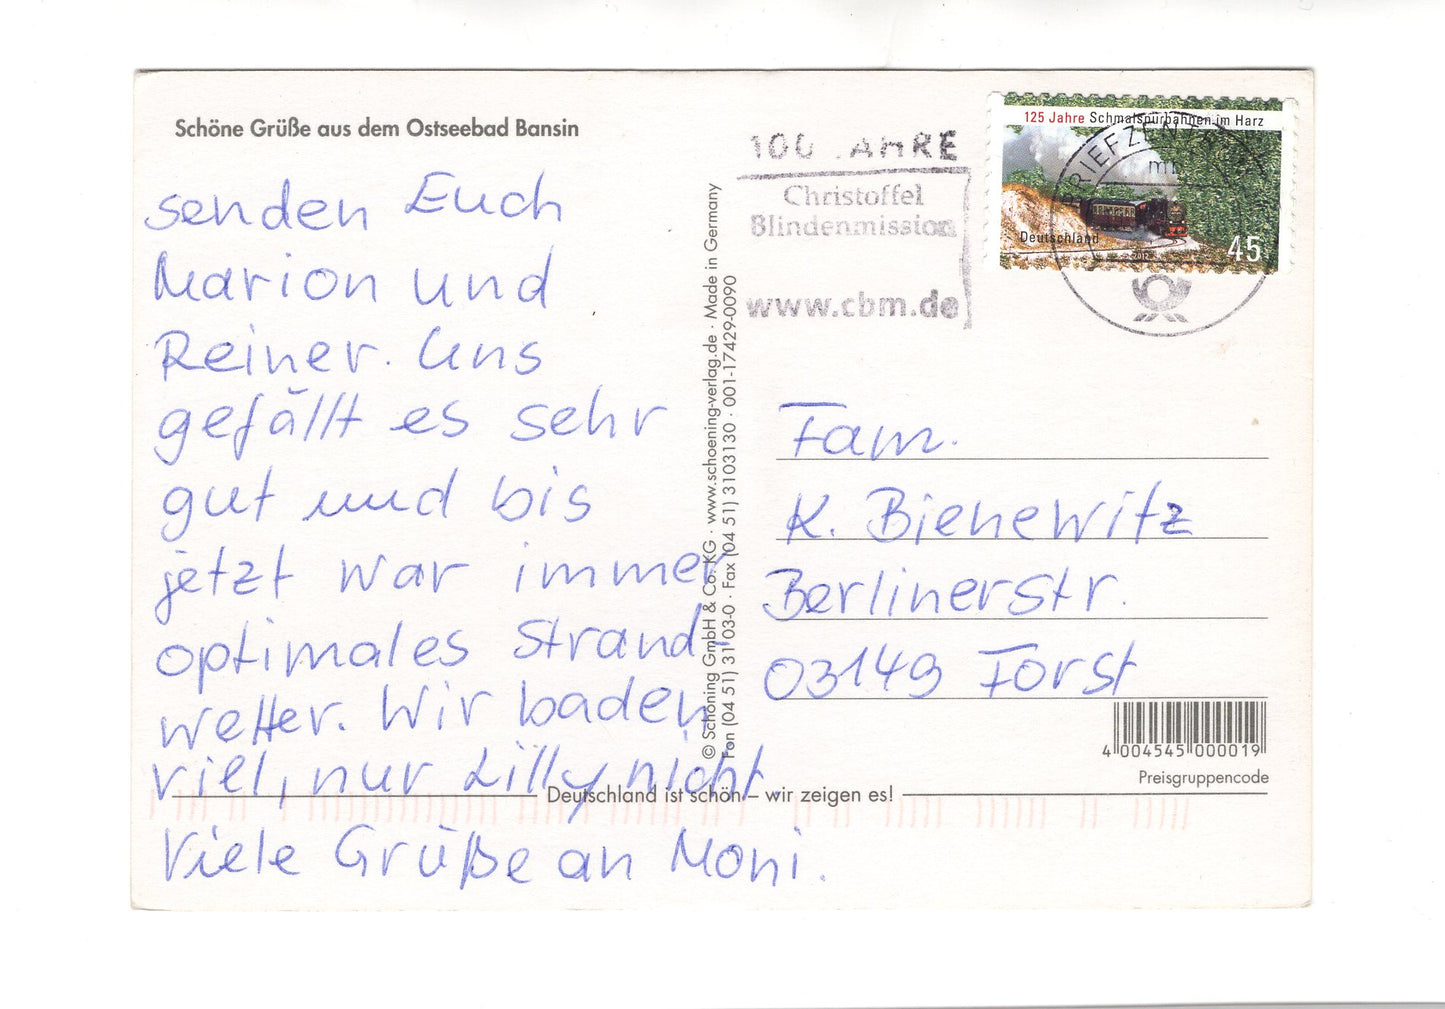 Schöne Grüße aus dem Ostseebad Bansin
senden Euch
Marion und
Reiner. Uns
gefällt es sehr
gut und bis
jetzt war immer
optimales Strand-
wetter. Wir baden
viel, nur Lilly nicht.
Viele Grüße an Moni.
Deutschland ist schön – wir zeigen es!
© Schöning GmbH & Co. KG · www.schoening-verlag.de · Made in Germany
Fon (04 51) 31 03-0 · Fax (04 51) 3103130 · 001-17429-0090
100 JAHRE
Christoffel
Blindenmission
www.cbm.de
125 Jahre Schmalspurbahnen im Harz
Deutschland
2012
45
BRIEFZENTRUM
Fam.
K. Bienewitz
Berlinerstr.
03149 Forst
4 004545 000019
Preisgruppencode